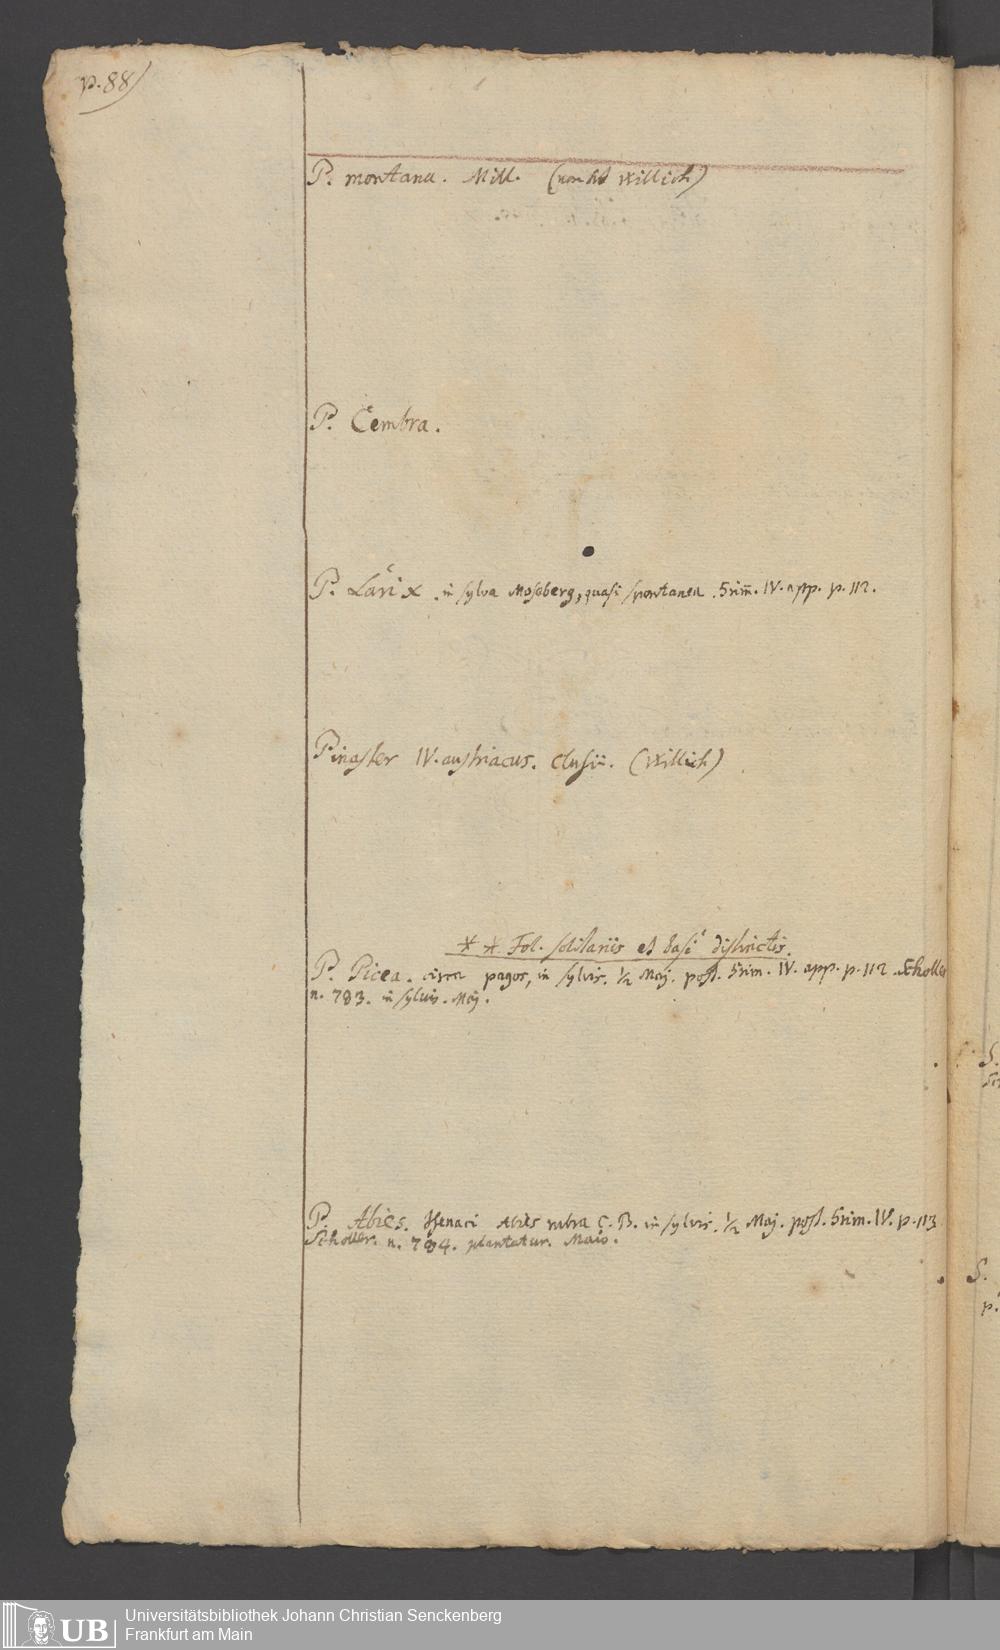 p. 88)
P. montana. Mill. (non hb Willich)
P. Cembra.
P. Larix. in sylva Moseberg, quasi spontanea. Grim̄. IV. app. p. 112.
Pinaster IV. austriacus. Clusii. (Willich)
* * Fol. solitariis et basi distinctis.
P. Picea. circa pagos, in sylvis. ½ Maj. post. Grim. IV. app. p. 112 Scholler
n. 783. in sylvis. Maj.
P. Abies. Isenaci Abies rubra C. B. in sylvis. ½ Maj. post. Grim. IV. p. 113
Scholler. n. 784. plantatur. Maio.
S.
S.
p.
UB
Universitätsbibliothek Johann Christian Senckenberg
Frankfurt am Main